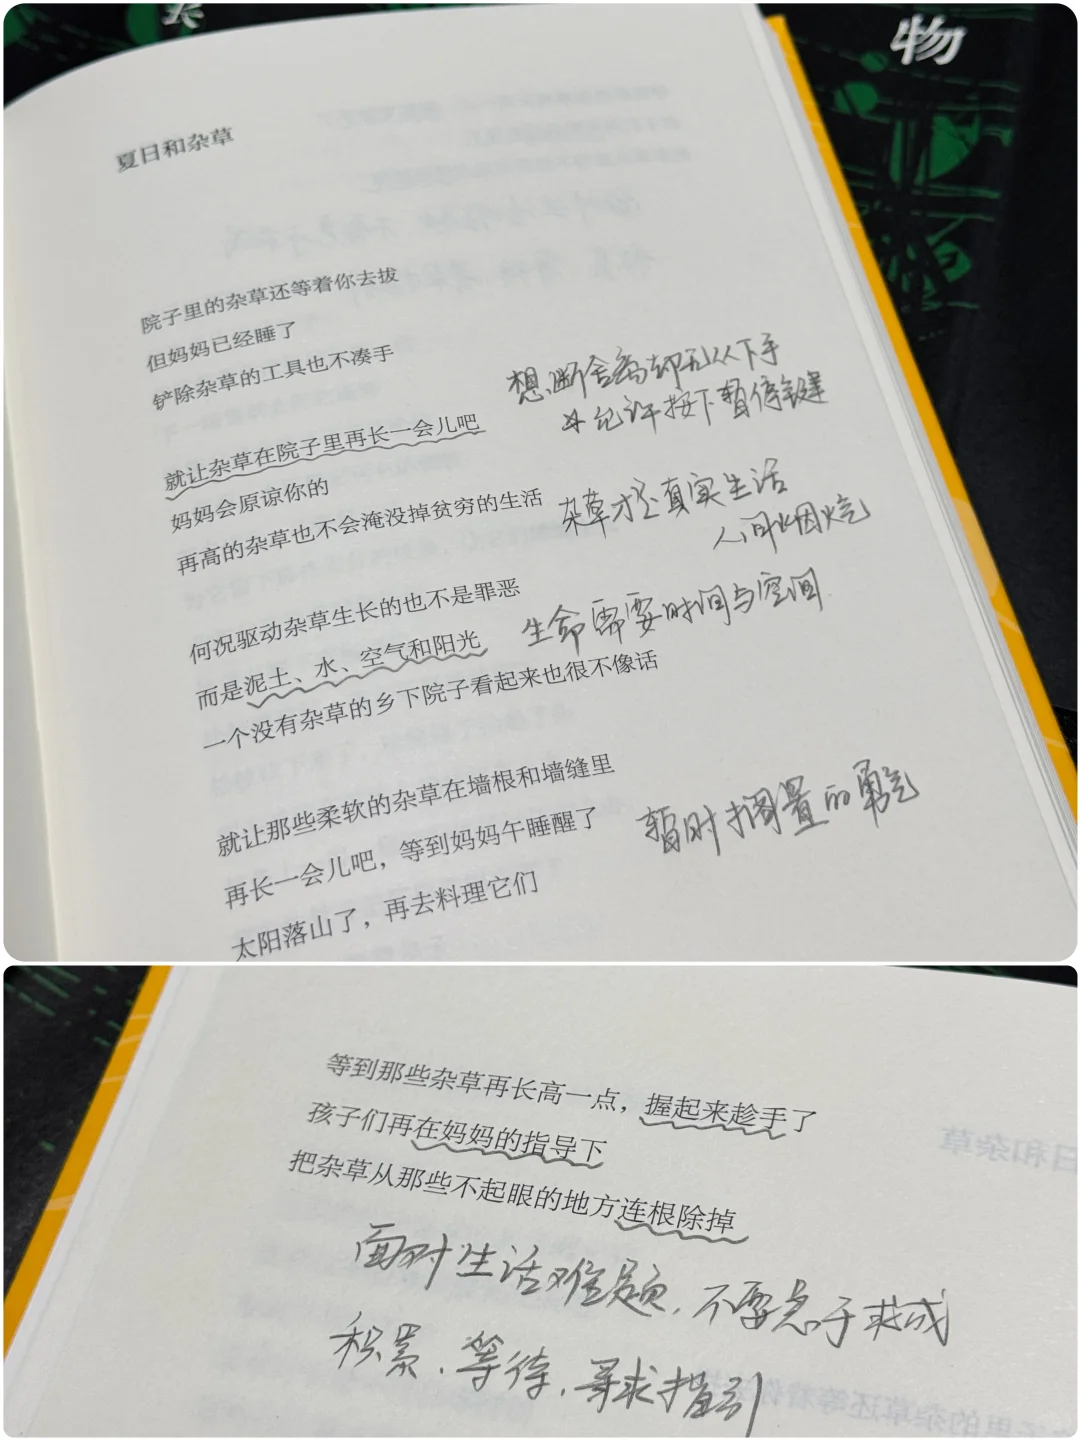 物
夏日和杂草
院子里的杂草还等着你去拔
但妈妈已经睡了
铲除杂草的工具也不凑手
想断舍离却无从下手
允许按下暂停键
就让杂草在院子里再长一会儿吧
妈妈会原谅你的
再高的杂草也不会淹没掉贫穷的生活
杂草才是真实生活
人间烟火气
何况驱动杂草生长的也不是罪恶
而是泥土、水、空气和阳光
生命需要时间与空间
一个没有杂草的乡下院子看起来也很不像话
就让那些柔软的杂草在墙根和墙缝里
再长一会儿吧，等到妈妈午睡醒了
太阳落山了，再去料理它们
暂时搁置的勇气
等到那些杂草再长高一点，握起来趁手了
孩子们再在妈妈的指导下
把杂草从那些不起眼的地方连根除掉
面对生活难题，不要急于求成
积累、等待、寻求指引